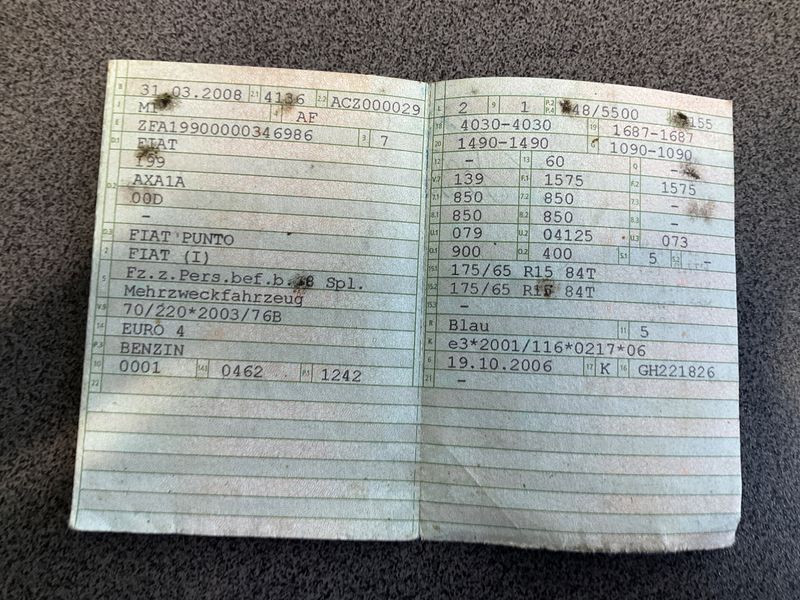 B 31.03.2008 2.1 4136 2.2 ACZ000029
J M1 4 AF
E ZFA19900000346986 3 7
D.1 FIAT
199
D.2 AXA1A
00D
–
D.3 FIAT PUNTO
2 FIAT (I)
5 Fz.z.Pers.bef.b. 8 Spl.
Mehrzweckfahrzeug
V.9 70/220*2003/76B
14 EURO 4
P.3 BENZIN
10 0001 14.1 0462 P.1 1242
22
L 2 9 1 P.2 P.4 48/5500 155
18 4030-4030 19 1687-1687
20 1490-1490 1090-1090
12 – 13 60 Q –
V.7 139 F.1 1575 F.2 1575
7.1 850 7.2 850 7.3 –
8.1 850 8.2 850 8.3 –
U.1 079 U.2 04125 U.3 073
O.1 900 O.2 400 S.1 5 S.2 –
15.1 175/65 R15 84T
15.2 175/65 R15 84T
15.3 –
R Blau 11 5
K e3*2001/116*0217*06
6 19.10.2006 17 K 16 GH221826
21 –